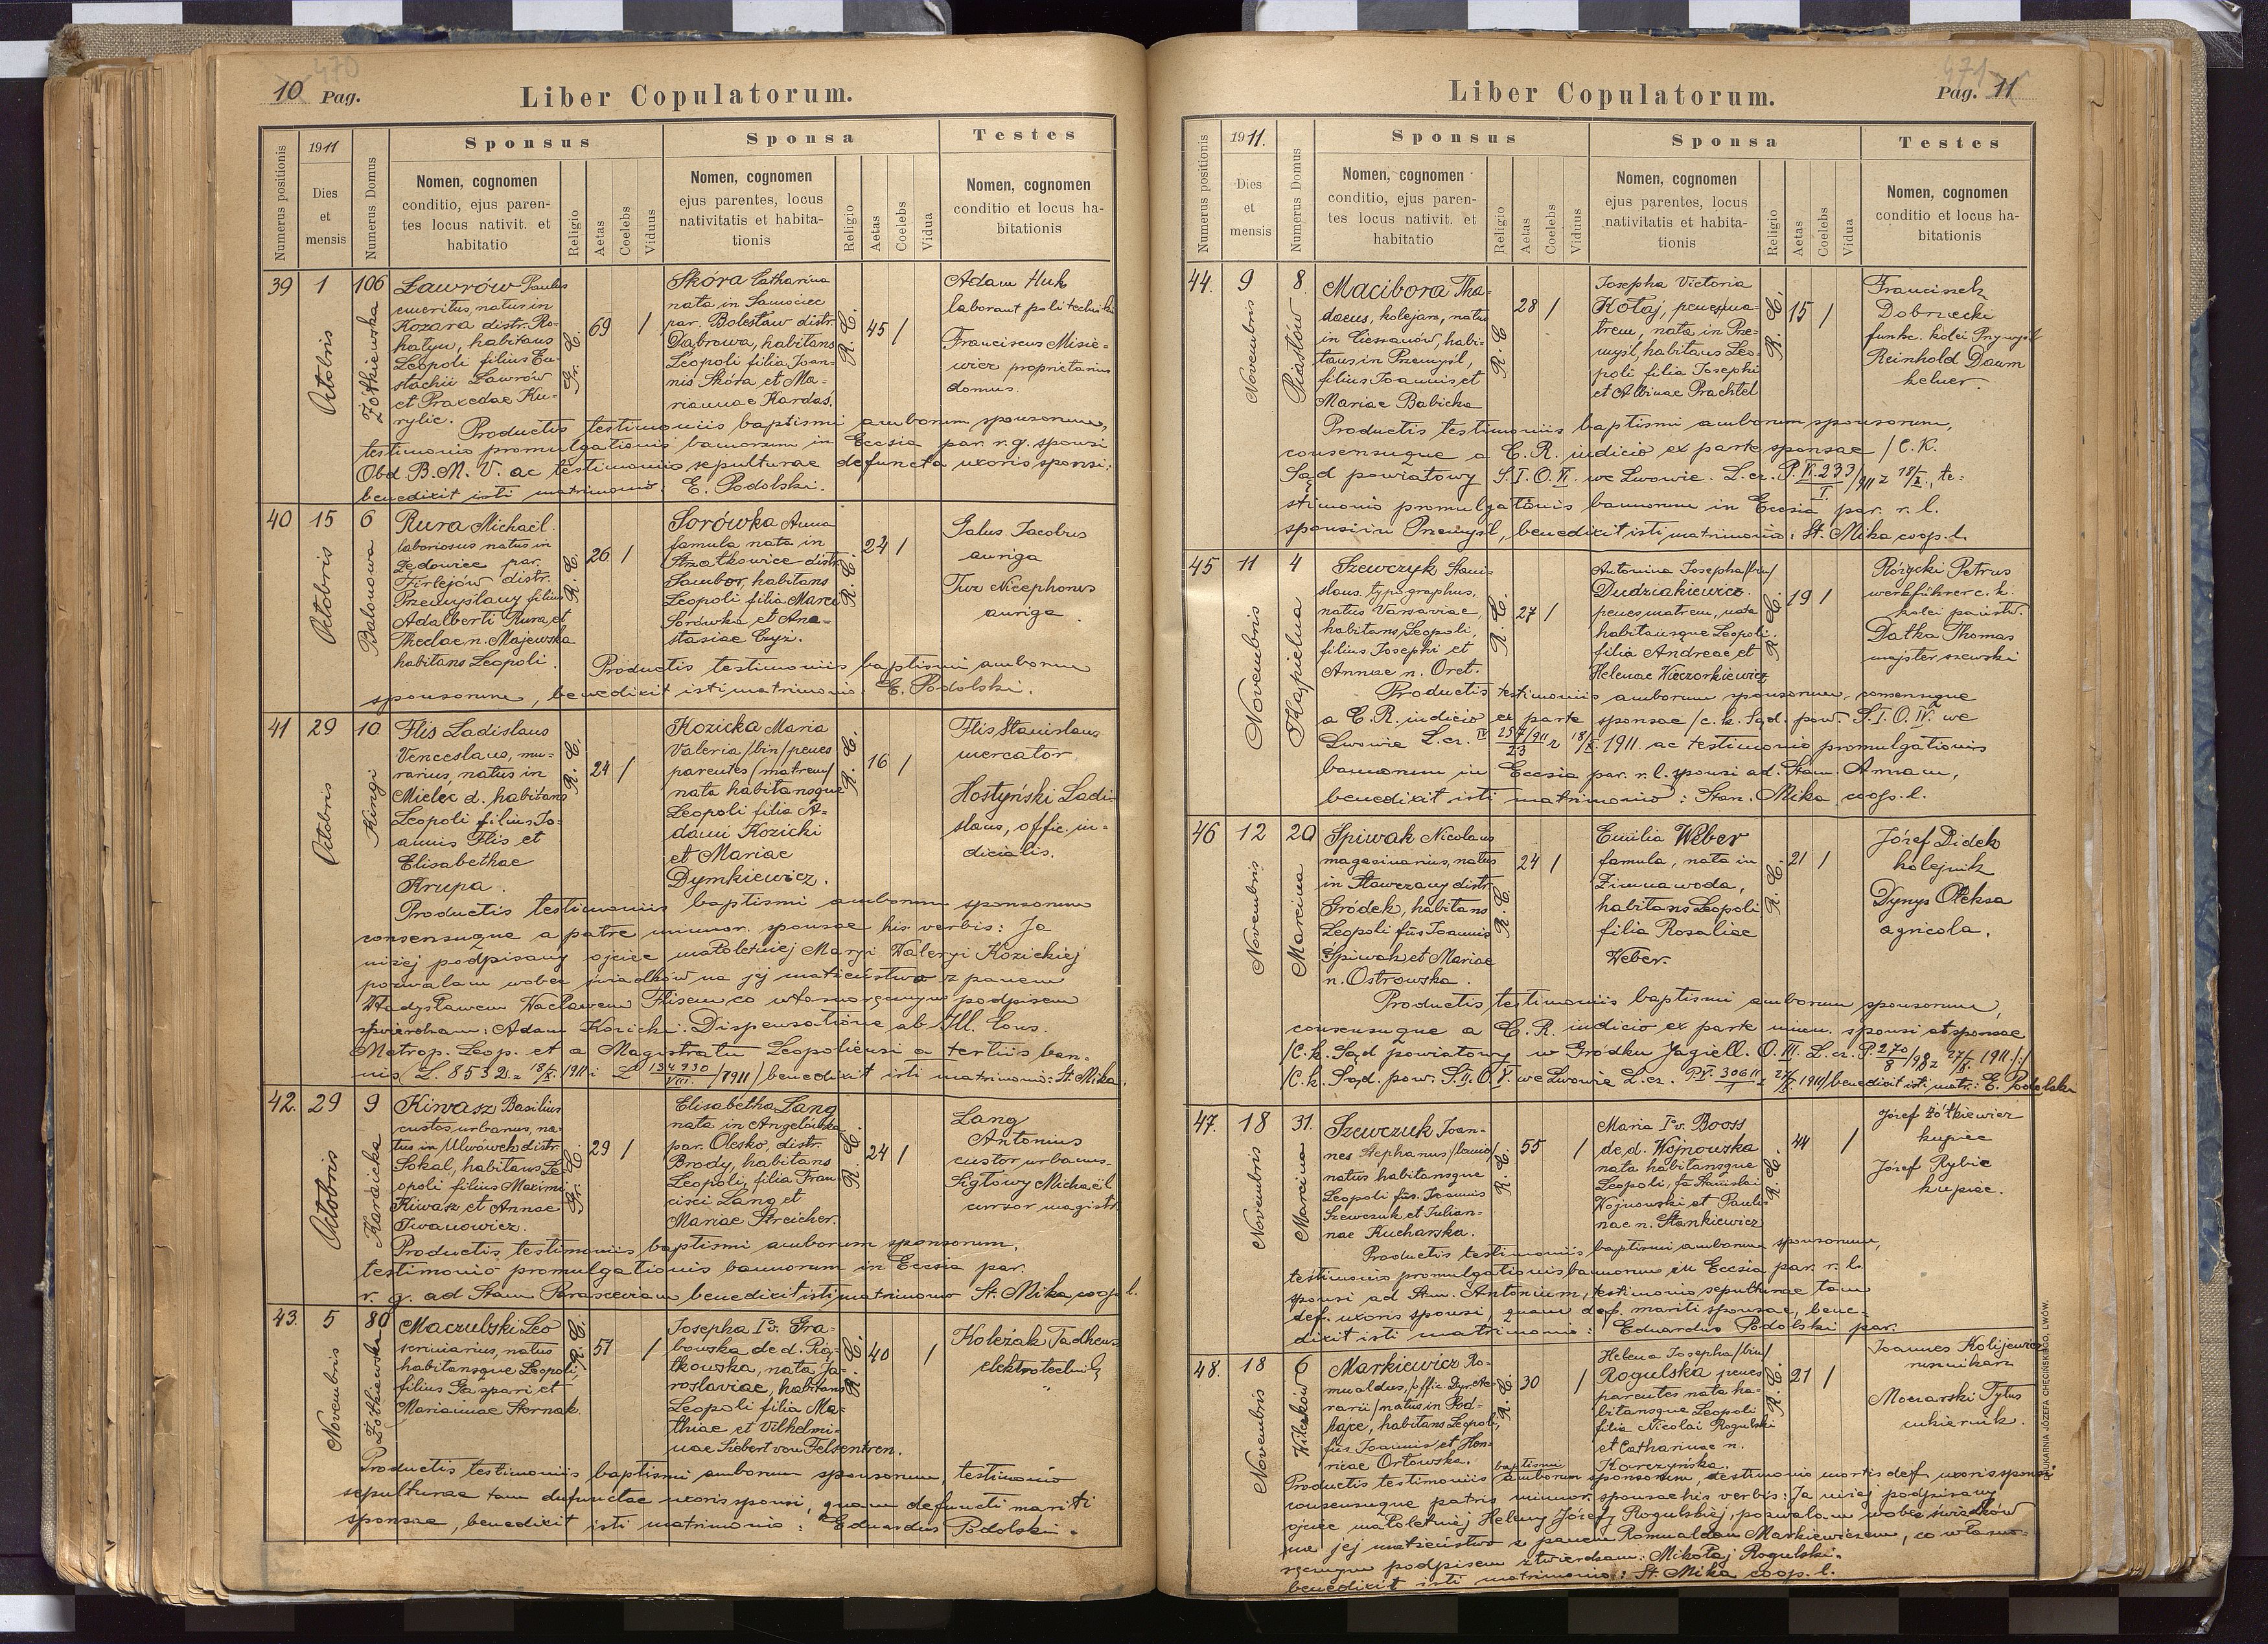 10 Pag.
470
Liber Copulatorum.
Numerus positionis
1911
Dies
et
mensis
Numerus Domus
Sponsus
Nomen, cognomen
conditio, ejus paren-
tes locus nativit. et
habitatio
Religio
Aetas
Coelebs
Viduus
Sponsa
Nomen, cognomen
ejus parentes, locus
nativitatis et habita-
tionis
Religio
Aetas
Coelebs
Vidua
Testes
Nomen, cognomen
conditio et locus ha-
bitationis
39
1
Octobris
106
Żółkiewska
Ławrów Paulus
emeritus, natus in
Kozara distr. Ro-
hatyn, habitans
Leopoli filius Eu-
stachii Ławrów
et Praxedae Ku-
rylic.
Gr. C.
69
/
Skóra Catharina
nata in Samocice
par. Bolesław distr.
Dąbrowa, habitans
Leopoli filia Joan-
nis Skóra et Ma-
riannae Kardaś.
R. C.
45
/
Adam Huk
laborant politechniki
Franciscus Misie-
wicz proprietarius
domus.
Productis testimoniis baptismi amborum sponsorum,
testimonio promulgationis bannorum in Eccsia par. r. g. sponsi
Obd. B. M. V. ac testimonio sepulturae defuncta uxoris sponsi:
benedixit isti matrimonio. E. Podolski.
40
15
Octobris
6
Balonowa
Rura Michaël
laboriosus natus in
Lędowice par.
Firlejów distr.
Przemyślany filius
Adalberti Rura et
Theclae n. Majewska
habitans Leopoli.
R. C.
26
/
Sorówka Anna
famula nata in
Strzałkowice distr.
Sambor, habitans
Leopoli filia Marci
Sorówka et Ana-
stasiae Czyż.
R. C.
24
/
Galus Jacobus
auriga
Twz Nicephones
auriga.
Productis testimoniis baptismi amborum
sponsorum, benedixit isti matrimonio: E. Podolski.
41
29
Octobris
10
Kingi
Flis Ladislaus
Venceslaus, mu-
rarius, natus in
Mielec d. habitans
Leopoli filius Jo-
annis Flis et
Elisabethae
Krupa.
R. C.
24
/
Kozicka Maria
Valeria /bin/ penes
parentes /matrem/
nata habitansque
Leopoli filia A-
dami Kozicki
et Mariae
Dymkiewicz.
R. C.
16
/
Flis Stanislaus
mercator.
Hostyński Ladi-
slaus, offic. iu-
dicialis.
Productis testimoniis baptismi amborum sponsorum
consensuque a patre minor. sponsae his verbis: Ja
niżej podpisany ojciec małoletniej Maryi Waleryi Kozickiej
pozwalam wobec świadków na jej małżeństwo z panem
Władysławem Wacławem Flisem co własnoręcznym podpisem
stwierdzam: Adam Kozicki. Dispensatione ab Ill. Cons.
Metrop. Leop. et a Magistratu Leopoliensi a tertiis ban-
nis /L. 8532 z 18/X. 1911 i L 134930/VIII /1911/ benedixit isti matrimonio: St. Mika.
42.
29
Octobris
9
Karaicka
Kiwasz Basilius
custos urbanus, na-
tus in Ulwówek distr.
Sokal, habitans Le-
opoli filius Maximi
Kiwasz et Annae
Iwanowicz.
Gr. C.
29
/
Elisabetha Lang
nata in Angelówka
par. Olesko, distr.
Brody, habitans
Leopoli, filia Fran-
cisci Lang et
Mariae Streicher.
R. C.
24
/
Lang
Antonius
custor urbanus.
Siglowy Michaël
cursor magistr.
Productis testimoniis baptismi amborum sponsorum,
testimonio promulgationis bannorum in Eccsia par.
r. g. ad Stam Parasceviam benedixit isti matrimonio St. Mika coop. l.
43.
5
Novembris
80
Żółkiewska
Maczulski Leo
scriniarius, natus
habitansque Leopoli,
filius Gaspari et
Mariannae Stornak
R. C.
51
/
Josepha I°v. Gra-
bowska de d. Pią-
tkowska, nata Ja-
roslaviae, habitans
Leopoli filia Ma-
thiae et Vilhelmi-
nae Siebert von Felsentren.
R. C.
40
/
Koleżak Tadheus
elektrotechnik
Productis testimoniis baptismi amborum sponsorum, testimonio
sepulturae tam defunctae uxoris sponsi, quam defuncti mariti
sponsae, benedixit isti matrimonio: Eduardus Podolski.
471
Pag. 11
Liber Copulatorum.
Numerus positionis
1911.
Dies
et
mensis
Numerus Domus
Sponsus
Nomen, cognomen
conditio, ejus paren-
tes locus nativit. et
habitatio
Religio
Aetas
Coelebs
Viduus
Sponsa
Nomen, cognomen
ejus parentes, locus
nativitatis et habita-
tionis
Religio
Aetas
Coelebs
Vidua
Testes
Nomen, cognomen
conditio et locus ha-
bitationis
44.
9
Novembris
8
Piastów
Macibora Tha-
daeus, kolejarz, natus
in Cieszanów, habi-
tans in Przemyśl,
filius Joannis et
Mariae Babicka
R. C.
28
/
Josepha Victoria
Kołaj, penes ma-
trem, nata in Prze-
myśl, habitans Leo-
poli filia Josephi
et Albinae Prachtel
R. C.
15
/
Franciszek
Dobrzecki
funkc. kolei Przemyśl
Reinhold Daum
kelner.
Productis testimoniis baptismi amborum sponsorum,
consensuque a C. R. iudicio ex parte sponsae /C. K.
Sąd powiatowy S. I. O. VI. we Lwowie. L. cz. P. VI. 233/1 /911 z 18/X., te-
stimonio promulgationis bannorum in Eccsia par. r. l.
sponsi in Przemyśl, benedixit isti matrimonio: St. Mika coop. l.
45
11
Novembris
4
Kąpielna
Szewczyk Stanis-
slaus. typographus,
natus Varsaviae,
habitans Leopoli,
filius Josephi et
Annae n. Oret.
R. C.
27
/
Antonina Josepha /bin/
Dudziakiewicz
penes matrem, nata
habitansque Leopoli.
filia Andreae et
Helenae Wieczorkiewicz
R. C.
19
/
Różycki Petrus
werkführer c. k.
kolei państw.
Datka Thomas
majster szewski
Productis testimoniis amborum sponsorum, consensuque
a C. R. iudicio ex parte sponsae /c. k. Sąd. pow. S. I. O. IV. we
Lwowie L. cz. IV 257/911/23 z 18/X. 1911 ac testimonio promulgationis
bannorum in Eccsia par. r. l. sponsi ad. Stam. Annam,
benedixit isti matrimonio: Stan. Mika coop. l.
46
12
Novembris
20
Marcina
Śpiwak Nicolaus
magasinarius, natus
in Stawczany distr.
Gródek, habitans
Leopoli fiis Joannis
Śpiwak et Mariae
n. Ostrowska.
R. C.
24
/
Emilia Weber
famula, nata in
Zimnawoda,
habitans Leopoli
filia Rosaliae
Weber.
R. C.
21
/
Józef Didek
kolejnik
Dynys Oleksa
agricola.
Productis testimoniis baptismi amborum sponsorum,
consensuque a C. R. iudicio ex parte minor. sponsi et sponsae
/C. k. Sąd powiatowy w Gródku Jagiell. O. III. L. cz. P. 270/8 /98 z 27/X. 1911./:/
/C. k. Sąd. pow. S. II. O V. we Lwowie L. cz. P V. 306 11/1 z 27/X 1911/ benedixit isti matr.: E. Podolski
47.
18
Novembris
31.
Marcina
Szewczuk Joan-
nes Stephanus /bino/
natus habitansque
Leopoli fiis. Joannis
Szewczuk et Julian-
nae Kucharska.
R. C.
55
/
Maria I°v. Booss
de d. Wojnowska
nata habitansque
Leopoli, fa Stanislai
Wojnowski et Pauli-
nae n. Stankiewicz
R. C.
44
/
Józef Żółkiewicz
kupiec
Józef Rybic
kupiec.
Productis testimoniis baptismi amborum sponsorum,
testimonio promulgationis bannorum in Eccsia par. r. l.
sponsi ad Stum. Antonium, testimonio sepulturae tam
def. uxoris sponsi, quam def. mariti sponsae, bene-
dixit isti matrimonio: Eduardus Podolski par.
48.
18
Novembris
6
Wilczków
Markiewicz Ro-
mualdus, /offic. Dyr. Ae-
rarii/ natus in Pod-
hajce, habitans Leopoli,
fiis Joannis et Hon-
ricae Orłowska.
R. C.
30
/
Helena Josepha /bin/
Rogulska penes
parentes nata ha-
bitansque Leopoli
filia Nicolai Rogulski
et Catharinae n.
Korczyńska.
R. C.
21
/
Joannes Kolijewicz
rusnikarz
Moczarski Tytus
cukiernik.
Productis testimoniis baptismi amborum sponsorum, testimonio mortis def. uxoris sponsi
consensuque patris minor. sponsae his verbis: Ja niżej podpisany
ojciec małoletniej Heleny Józefy Rogulskiej, pozwalam wobec świadków
na jej małżeństwo z panem Romualdem Markiewiczem, co własno-
ręcznym podpisem stwierdzam: Mikołaj Rogulski.
benedixit isti matrimonio: St. Mika coop. l.
DRUKARNIA JÓZEFA CHĘCIŃSKIEGO, LWÓW.